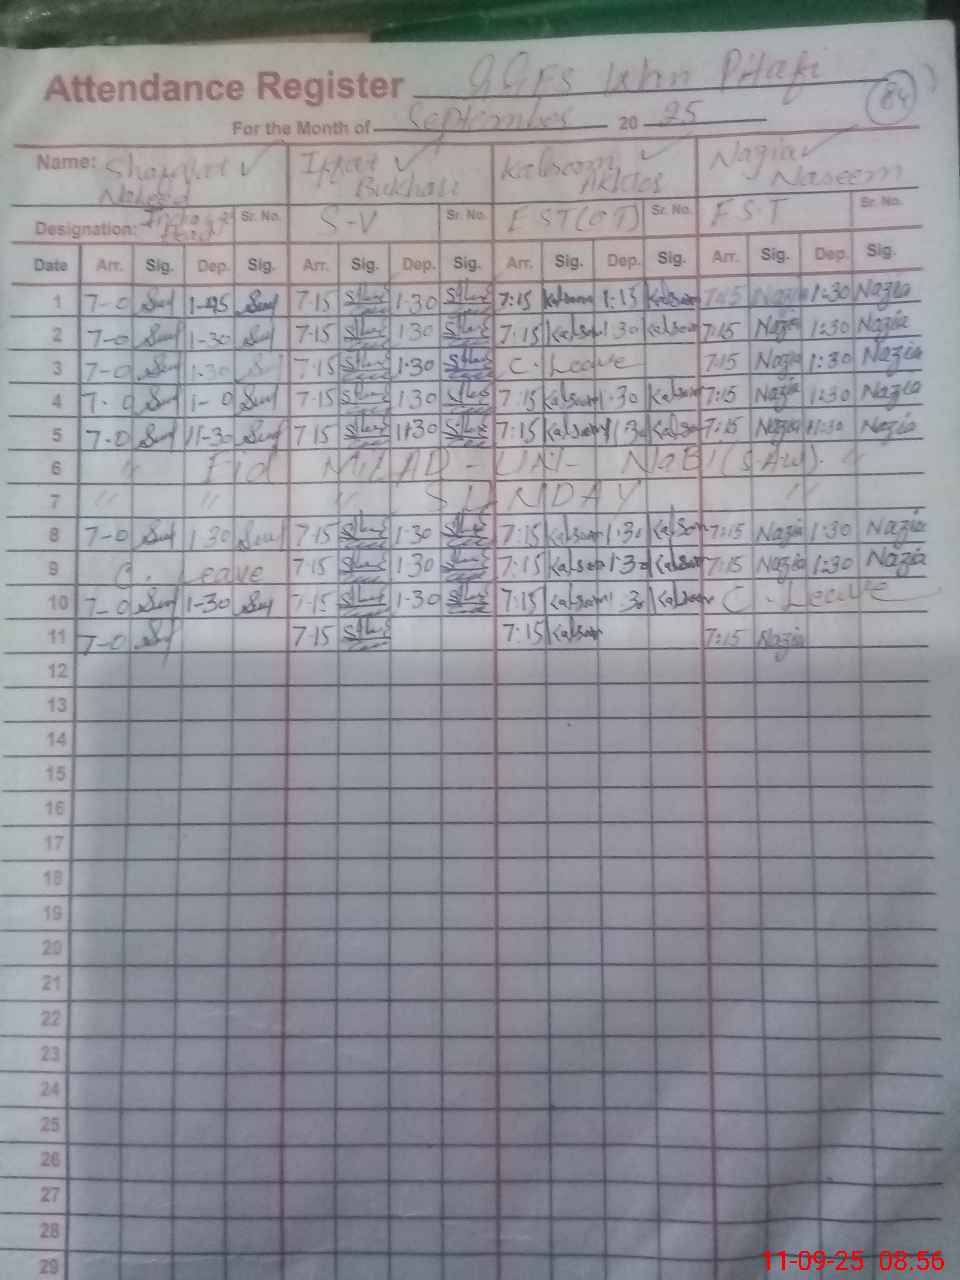 Attendance Register GGES
84
For the Month of September 20 25
Name: Naheed Bukhari Kalsoom Nazia Naseem
Designation: Incharge Head Sr. No. S-V Sr. No. EST(OT) Sr. No. E S-T Sr. No.
Date Arr. Sig. Dep. Sig. Arr. Sig. Dep. Sig. Arr. Sig. Dep. Sig. Arr. Sig. Dep. Sig.
1 7-0 1-45 7-15 1-30 7:15 Kalsoom 1:15 Kalsoom 7:15 Nazia 1:30 Nazia
2 7-0 1-30 7-15 130 7:15 Kalsoom 1:30 Kalsoom 7:15 Nazia 1:30 Nazia
3 7-0 1-30 7-15 1-30 C. Leave 7:15 Nazia 1:30 Nazia
4 7-0 1-0 7-15 130 7:15 Kalsoom 1:30 Kalsoom 7:15 Nazia 1:30 Nazia
5 7-0 11-30 7-15 11-30 7:15 Kalsoom 1:30 Kalsoom 7:15 Nazia 11:30 Nazia
6 " Eid MILAD-UN-NABI (S.AW). "
7 " " " SUNDAY "
8 7-0 1 30 7-15 1-30 7:15 Kalsoom 1:30 Kalsoom 7:15 Nazia 1:30 Nazia
9 C. Leave 7-15 1 30 7:15 Kalsoom 1:30 Kalsoom 7:15 Nazia 1:30 Nazia
10 7-0 1-30 7-15 1-30 7:15 Kalsoom 1:30 Kalsoom C. Leave
11 7-0 7-15 7:15 Kalsoom 7:15 Nazia
12
13
14
15
16
17
18
19
20
21
22
23
24
25
26
27
28
29
11-09-25 08.56